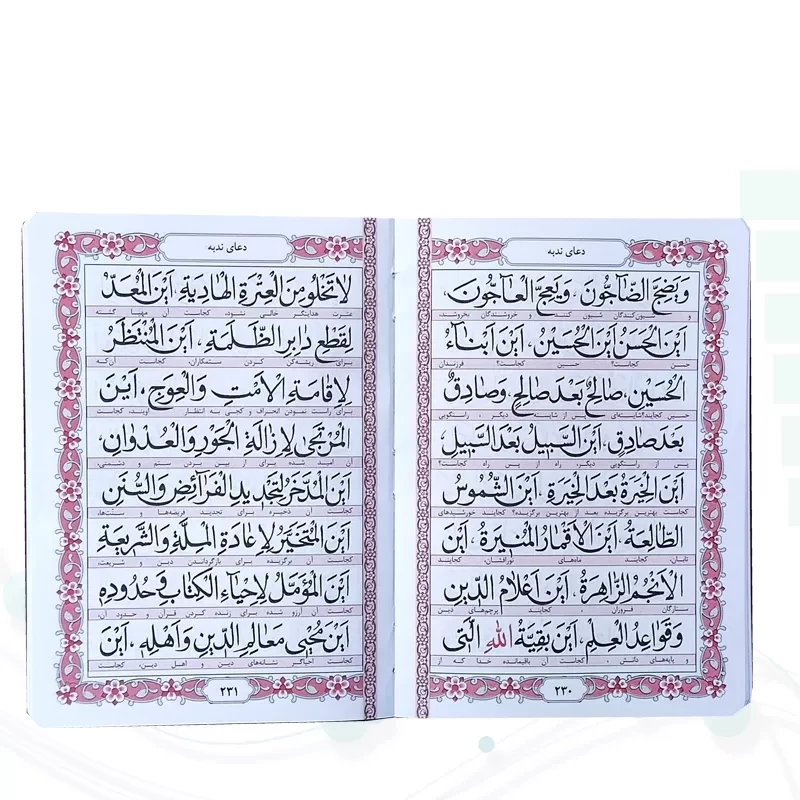 دعای ندبه
وَيَضِجَّ الضّاجُّونَ، وَيَعِجَّ الْعاجُّونَ،
و شیون‌کنندگان شیون کنند و خروشندگان بخروشند،
اَيْنَ الْحَسَنُ اَيْنَ الْحُسَيْنُ، اَيْنَ اَبْناءُ
حسن کجاست؟ حسین کجاست؟ فرزندان
الْحُسَيْنِ، صالِحٌ بَعْدَ صالِحٍ، وَصادِقٌ
حسین کجایند؟شایسته‌ای پس از شایسته‌ای دیگر، راستگویی
بَعْدَ صادِقٍ، اَيْنَ السَّبيلُ بَعْدَ السَّبيلِ،
پس از راستگویی دیگر، راه از پس راه کجاست؟
اَيْنَ الْخِيَرَةُ بَعْدَ الْخِيَرَةِ، اَيْنَ الشُّمُوسُ
کجاست بهترین برگزیده بعد از بهترین برگزیده؟ کجایند خورشیدهای
الطّالِعَةُ، اَيْنَ الْاَقْمارُ الْمُنيرَةُ، اَيْنَ
تابان، کجایند ماه‌های نورافشان، کجایند
الْاَنْجُمُ الزّاهِرَةُ، اَيْنَ اَعْلامُ الدّينِ
ستارگان فروزان کجایند پرچم‌های دین
وَقَواعِدُ الْعِلْمِ، اَيْنَ بَقِيَّةُ اللّٰهِ الَّتى
و پایه‌های دانش، کجاست آن باقیمانده خدا که از
۲۳۰
دعای ندبه
لاتَخْلُو مِنَ الْعِتْرَةِ الْهادِيَةِ، اَيْنَ الْمُعَدُّ
عترت هدایتگر خالی نشود، کجاست آن مهیا گشته
لِقَطْعِ دابِرِ الظَّلَمَةِ، اَيْنَ الْمُنْتَظَرُ
برای ریشه‌کن کردن ستمکاران، کجاست آن‌که
لِاِقامَةِ الْاَمْتِ وَالْعِوَجِ، اَيْنَ
برای راست نمودن انحراف و کجی به انتظار اویند، کجاست
الْمُرْتَجى لِاِزالَةِ الْجَوْرِ وَالْعُدْوانِ،
آن امید شده برای از بین بردن ستم و دشمنی،
اَيْنَ الْمُدَّخَرُ لِتَجْديدِ الْفَرآئِضِ وَالسُّنَنِ
کجاست آن ذخیره برای تجدید فریضه‌ها و سنّت‌ها،
اَيْنَ الْمُتَخَيَّرُ لِاِعادَةِ الْمِلَّةِ وَالشَّريعَةِ
کجاست آن برگزیده برای بازگرداندن دین و شریعت،
اَيْنَ الْمُؤَمَّلُ لِاِحْياءِ الْكِتابِ وَحُدُودِهِ
کجاست آن آرزو شده برای زنده کردن قرآن و حدود آن،
اَيْنَ مُحْيى مَعالِمِ الدّينِ وَاَهْلِهِ، اَيْنَ
کجاست احیاگر نشانه‌های دین و اهل دین، کجاست
۲۳۱